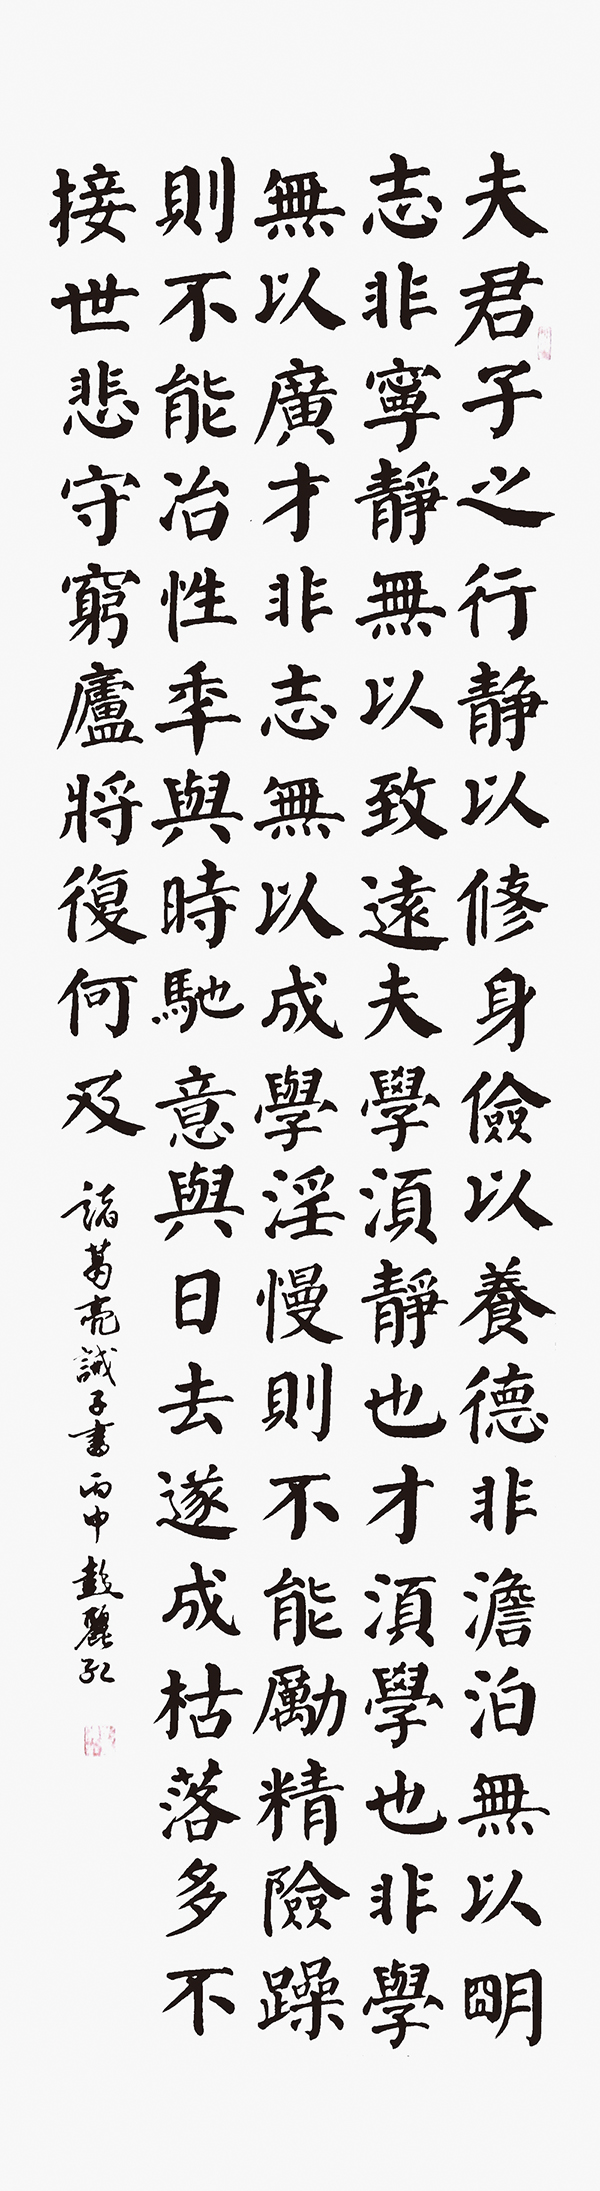 夫君子之行静以修身儉以養德非澹泊無以明
志非寧靜無以致遠夫學湏靜也才湏學也非學
無以廣才非志無以成學淫慢則不能勵精險躁
則不能冶性年與時馳意與日去遂成枯落多不
接世悲守窮廬將復何及
諸葛亮誡子書丙申彭麗